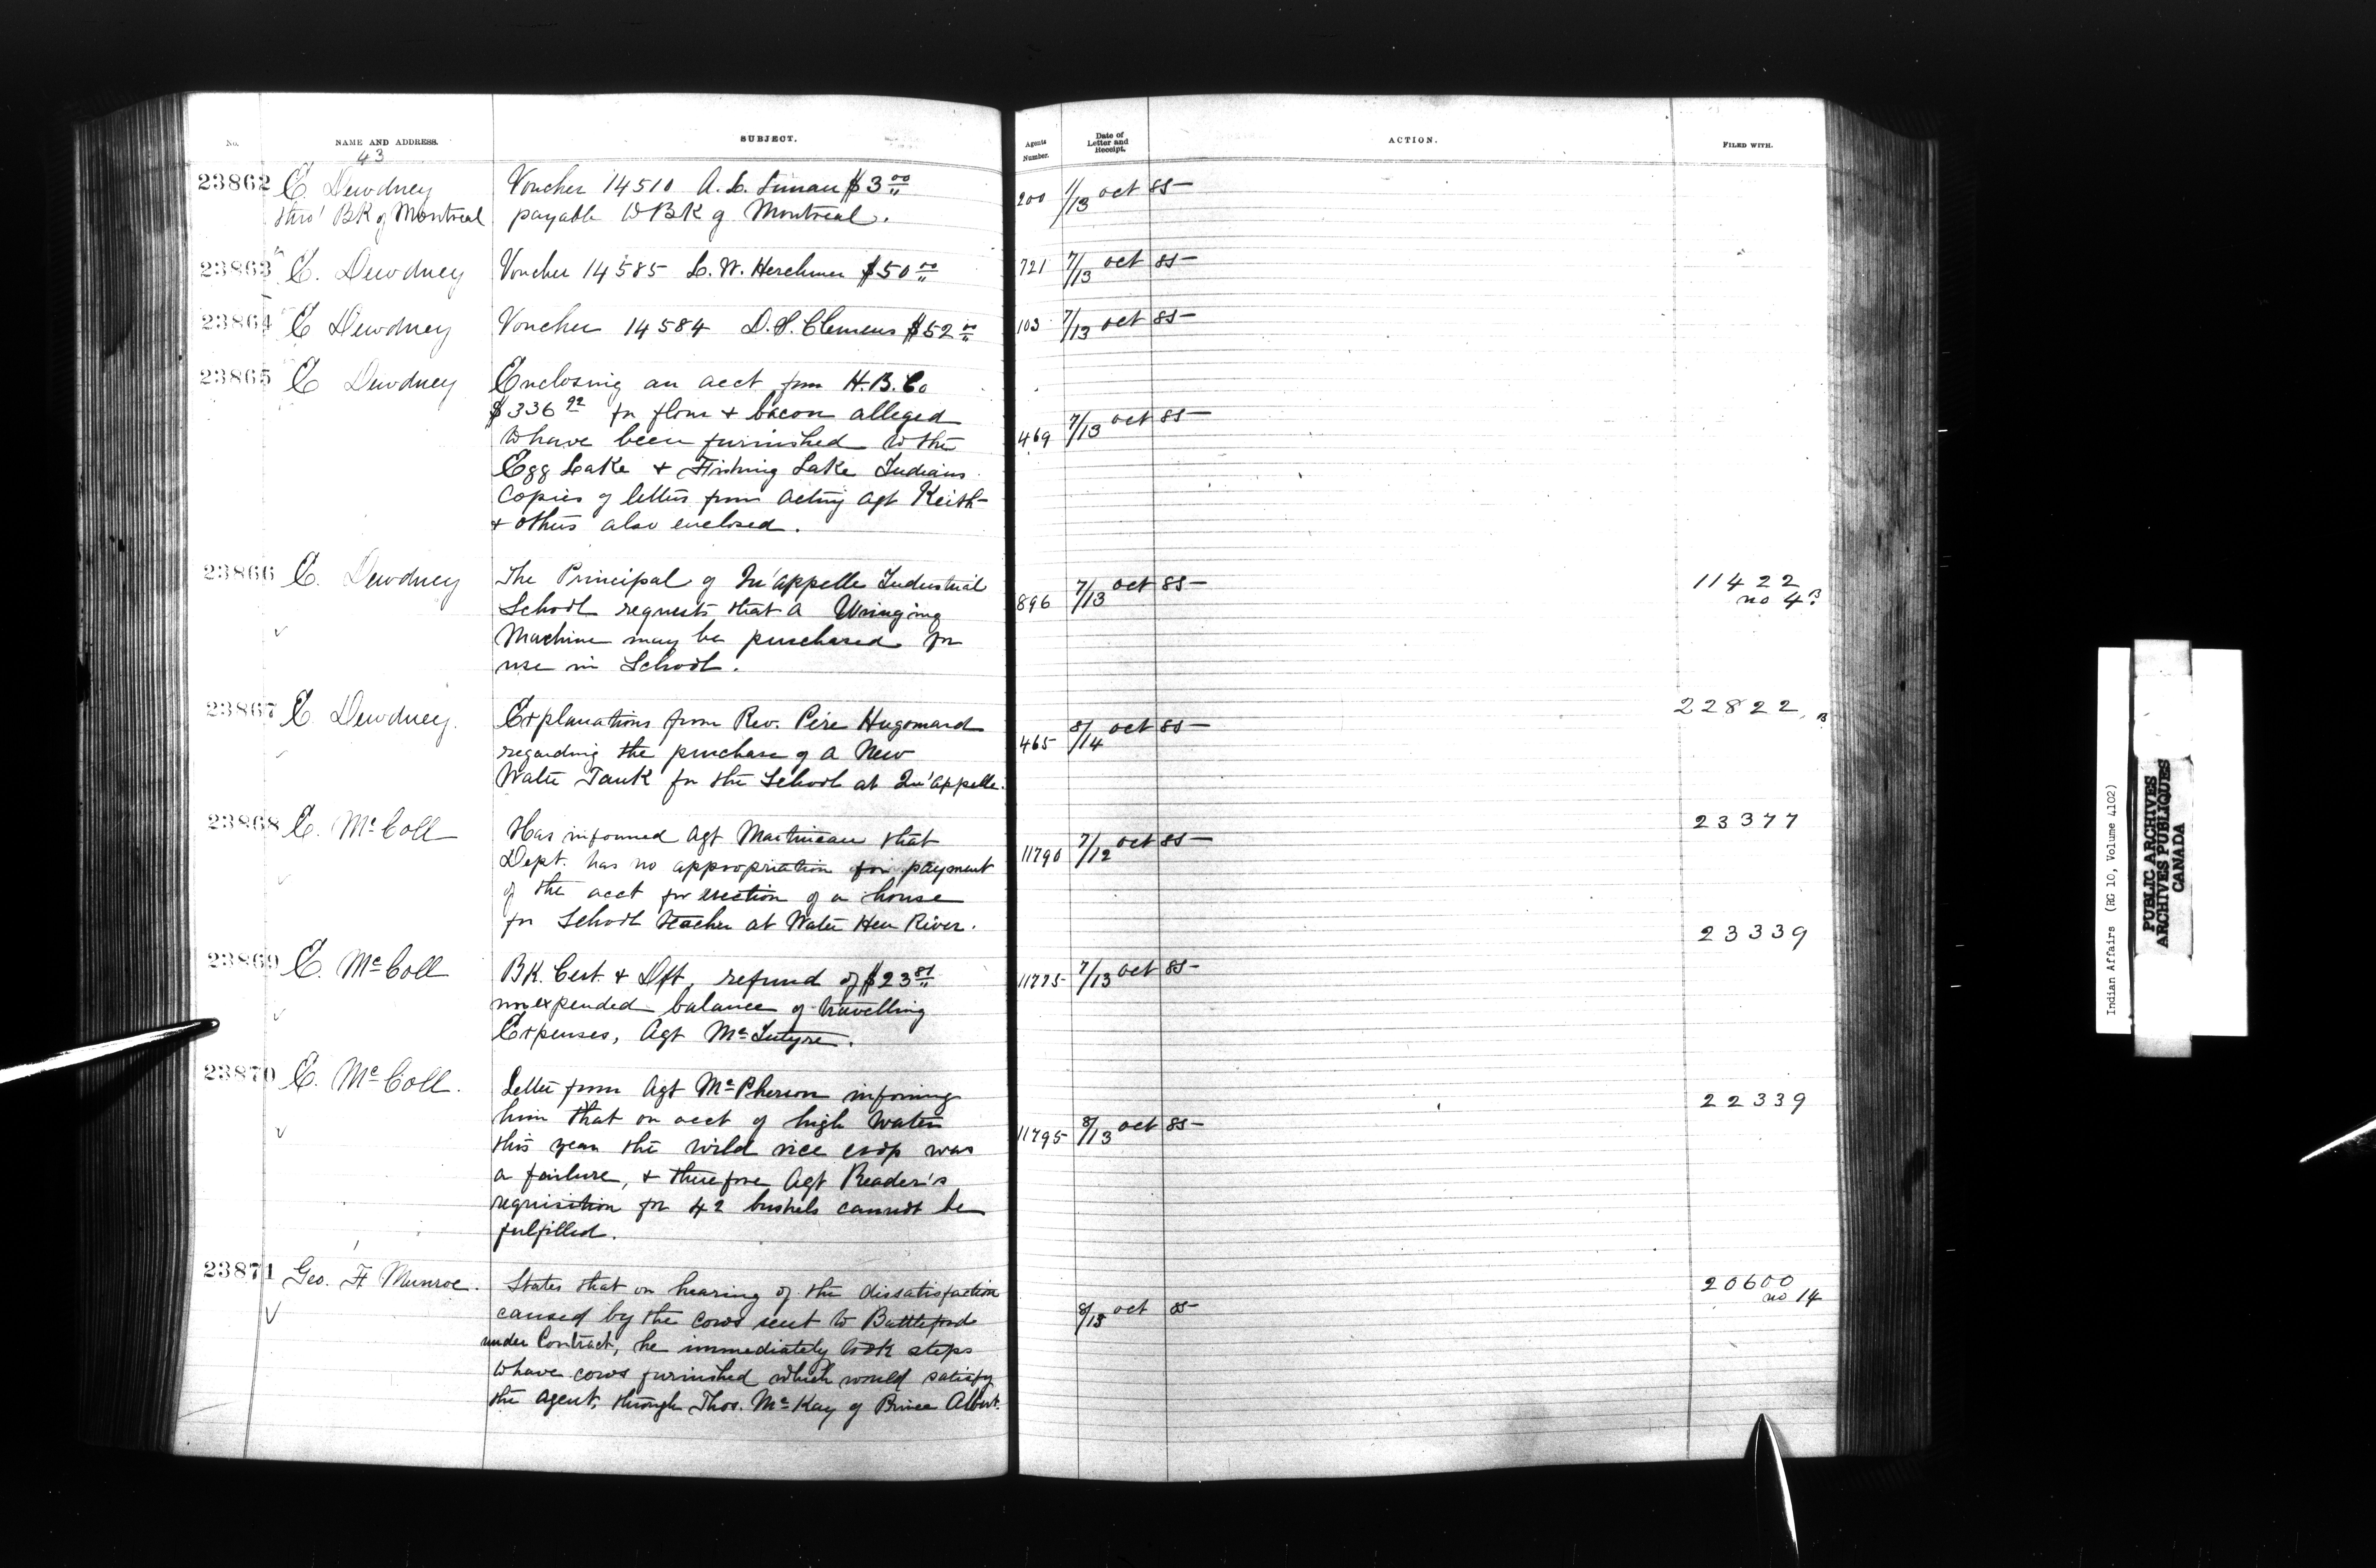 No. NAME AND ADDRESS. SUBJECT. Agents Number. Date of Letter and Receipt. ACTION. FILED WITH.
43
23862 E. Dewdney Voucher 14510 A. L. $3.00 200 1/13 oct 85
thro' BK of Montreal payable to BK of Montreal.
23863 E. Dewdney Voucher 14585 L. W. Herchmer $50.00 721 7/13 oct 85
23864 E Dewdney Voucher 14584 D. S. Clemens $52.00 103 7/13 oct 85
23865 E Dewdney Enclosing an acct from H. B. Co
$336.92 for flour & bacon alleged
to have been furnished to the 469 7/13 oct 85
Egg Lake & Fishing Lake Indians
Copies of letters from acting agt Keith
& others also enclosed.
23866 E. Dewdney The Principal of Qu'appelle Industrial 896 7/13 oct 85 11422
School requests that a Wringing no 4 B
Machine may be purchased for
use in School.
23867 E. Dewdney. Explanations from Rev. Père Hugomard 465 8/14 oct 85 22822 B
regarding the purchase of a New
Water Tank for the School at Qu'appelle.
23868 E. McColl Has informed Agt Martineau that 11790 7/12 oct 85 23377
Dept. has no appropriation for payment
of the acct for erection of a house
for School teacher at Water Hen River.
23869 E. McColl BK. Cert. & Dft, refund of $23.81 11775 7/13 oct 85 23339
nonexpended balance of travelling
Expenses, Agt McIntyre.
23870 E. McColl. Letter from Agt McPherson informing 22339
him that on acct of high water 11795 8/13 oct 85
this year the wild rice crop was
a failure, & therefore Agt Reader's
requisition for 42 bushels cannot be
fulfilled.
23871 Geo. F Munroe. States that on hearing of the dissatisfaction 8/13 oct 85 20600
caused by the cows sent to Battleford no 14
under Contract, he immediately took steps
to have cows furnished which would satisfy
the agent, through Thos. McKay of Prince Albert.
Indian Affairs (RG 10, Volume 4102)
PUBLIC ARCHIVES
ARCHIVES PUBLIQUES
CANADA